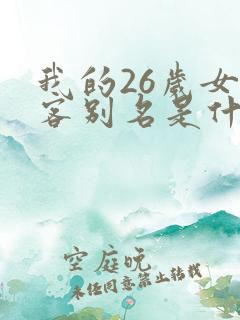 我的26歲女
客别名是什
空庭晚
未经同意禁止转载